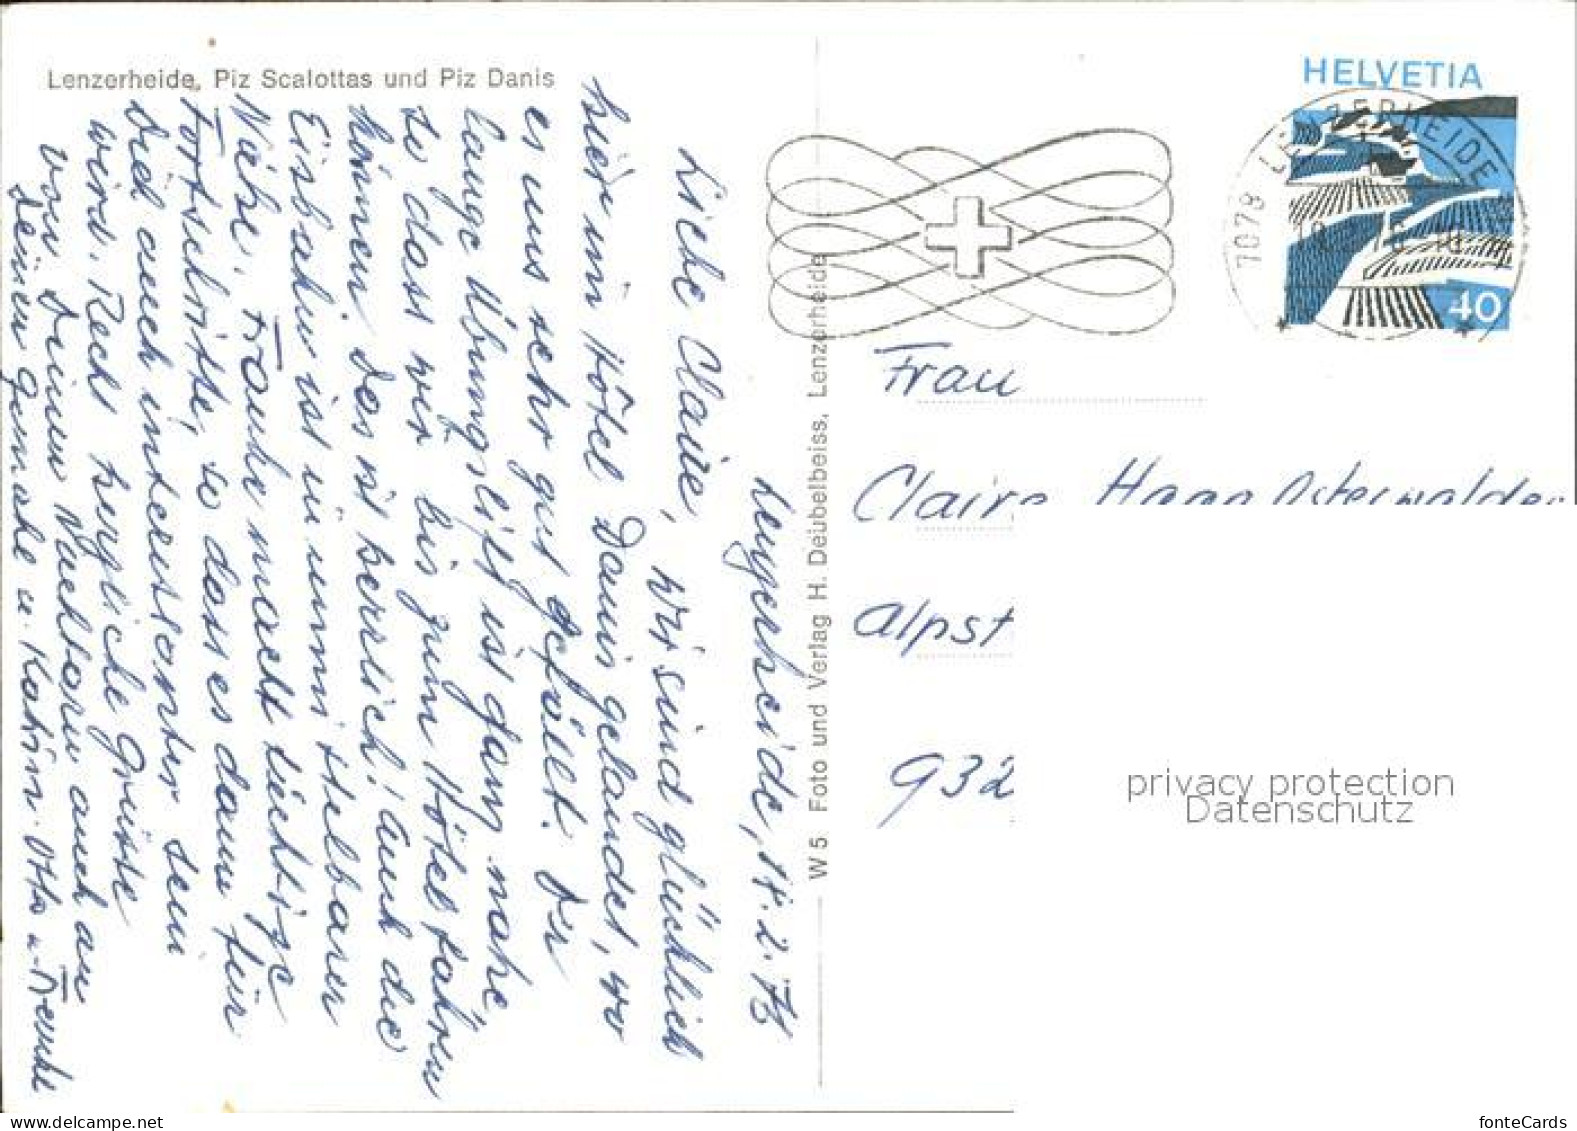 Lenzerheide, Piz Scalottas und Piz Danis
Lenzerheide, 17.2.76
Liebe Claire, wir sind glücklich
hier im Hôtel Danis gelandet, wo
es uns sehr gut gefällt. Der
lange Übungslift ist ganz nahe,
so dass wir bis zum Hôtel fahren
können. Das ist herrlich! Auch die
Eisbahn ist in unmittelbarer
Nähe. Frauke macht tüchtige
Fortschritte, so dass es dann für
Dich auch interessanter sein
wird. Recht herzliche Grüsse
von Deinen Nachbarn auch an
Deinen Gemahl u. Katrin. Otto u.
W 5 Foto und Verlag H. Deubelbeiss, Lenzerheide
HELVETIA
40
7078 LENZERHEIDE
Frau
Claire Haag Osterwalder
Alpst
932
privacy protection
Datenschutz
fonteCards